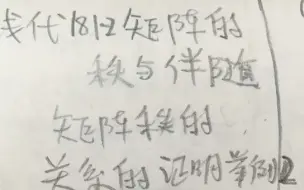 线代1812矩阵的
秩与伴随
矩阵秩的
关系的证明举例2